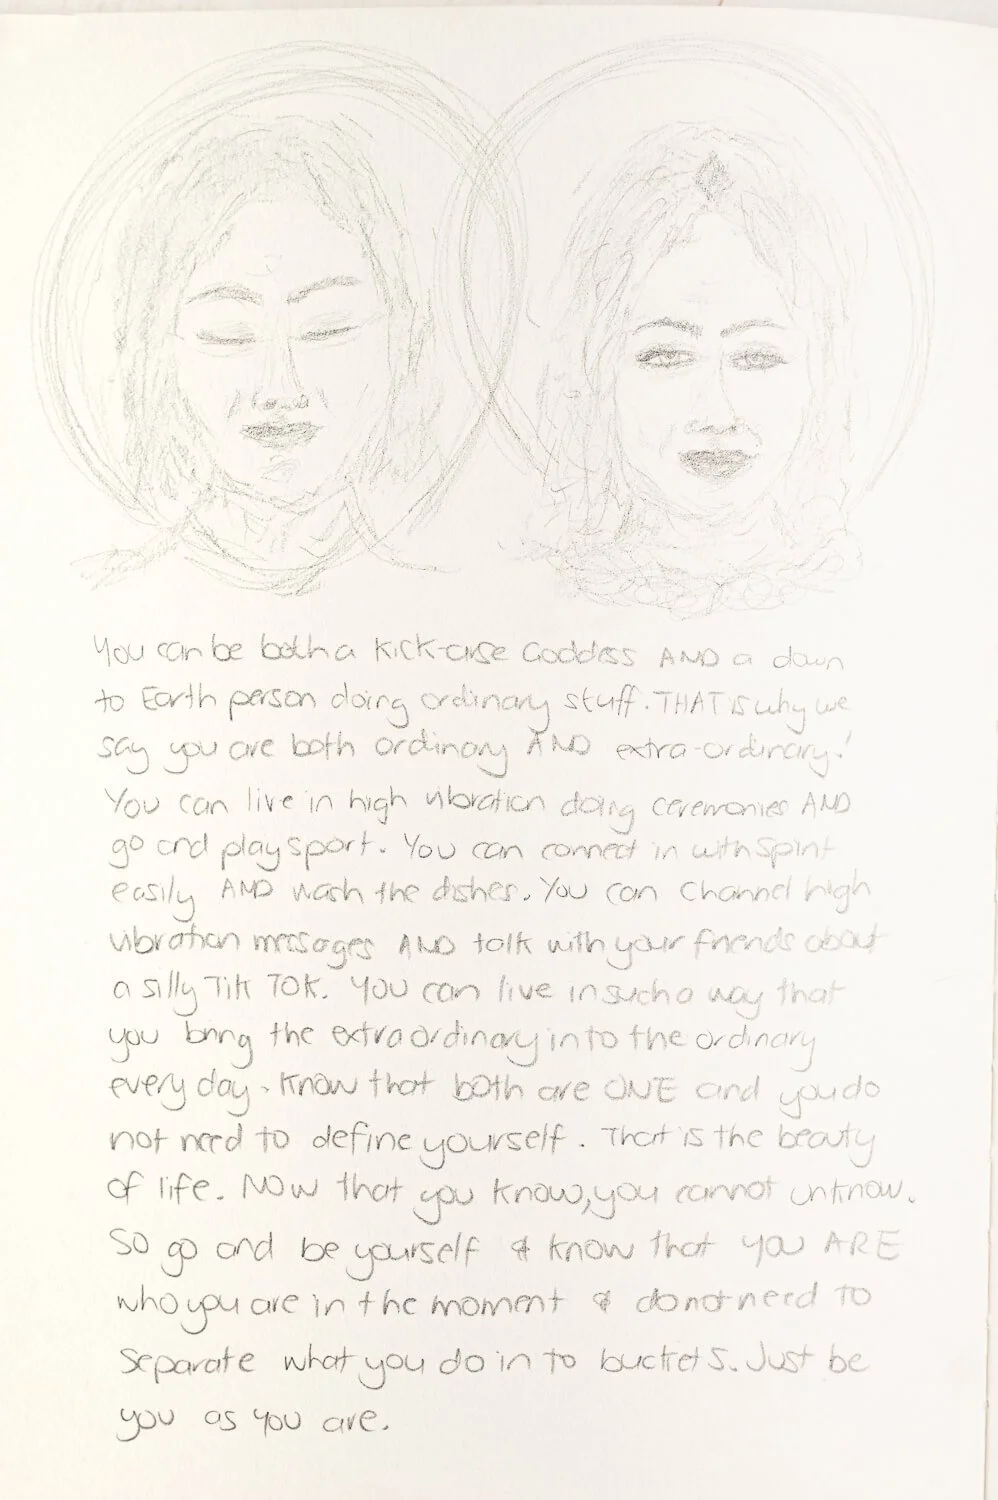 You can be both a kick-arse Goddess AND a down
to Earth person doing ordinary stuff. THAT is why we
say you are both ordinary AND extra-ordinary!
You can live in high vibration doing ceremonies AND
go and play sport. You can connect in with Spirit
easily AND wash the dishes. You can channel high
vibration messages AND talk with your friends about
a silly Tik Tok. You can live in such a way that
you bring the extraordinary into the ordinary
every day. Know that both are ONE and you do
not need to define yourself. That is the beauty
of life. Now that you know, you cannot unknow.
So go and be yourself & know that you ARE
who you are in the moment & do not need to
separate what you do in to buckets. Just be
you as you are.